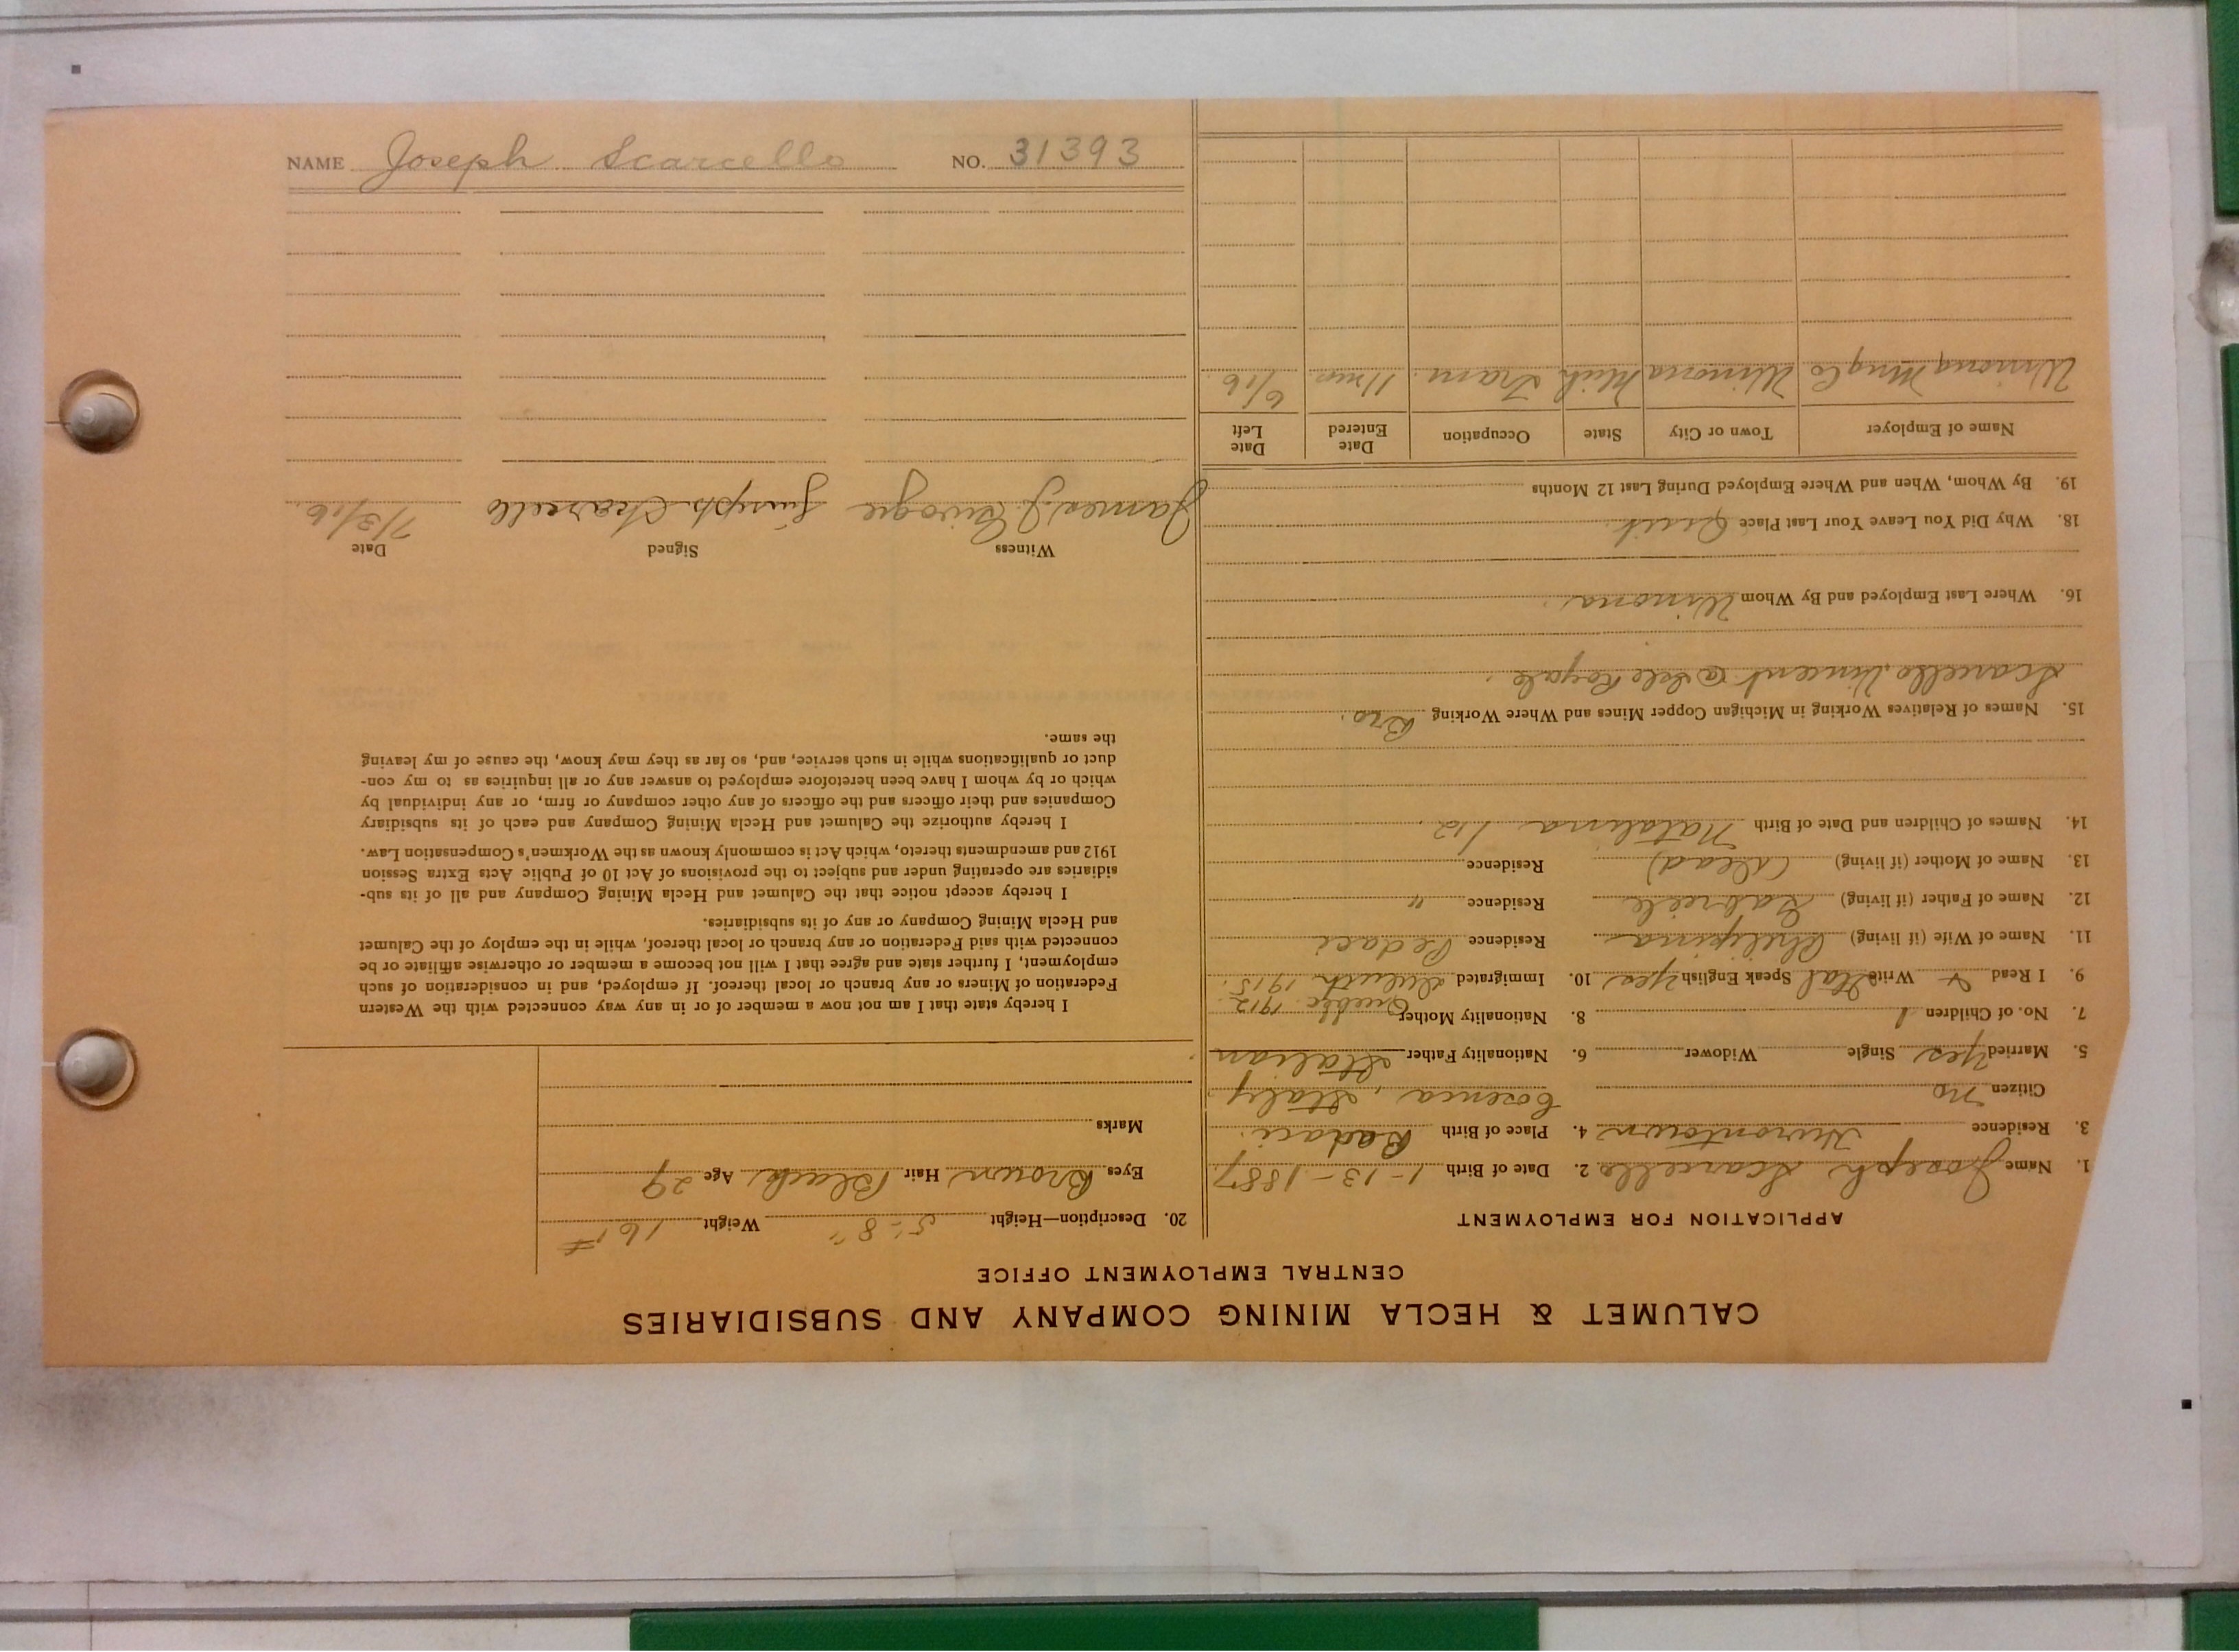 NAME Joseph Scarcello NO. 31393
CALUMET & HECLA MINING COMPANY AND SUBSIDIARIES
CENTRAL EMPLOYMENT OFFICE
APPLICATION FOR EMPLOYMENT
1. Name Joseph Scarcello 2. Date of Birth 1-13-1887
3. Residence Hurontown 4. Place of Birth Badaci
Citizen no Cosenza, Italy
5. Married yes Single Widower 6. Nationality Father Italian
7. No. of Children 1 8. Nationality Mother Quebec 1912
9. I Read & Write Ital Speak English yes 10. Immigrated Duluth 1915
11. Name of Wife (if living) Residence Pedaci
12. Name of Father (if living) Gabreile Residence "
13. Name of Mother (if living) (Dead) Residence
14. Names of Children and Date of Birth Natalina 1/12
15. Names of Relatives Working in Michigan Copper Mines and Where Working Bro.
Scarcello, Vincent @ Isle Royale
16. Where Last Employed and By Whom Winona
18. Why Did You Leave Your Last Place Quit
19. By Whom, When and Where Employed During Last 12 Months
Name of Employer Town or City State Occupation Date Entered Date Left
Winona Mng Co Winona Mich Tram 11 mos. 6/16
20. Description—Height 5'-8" Weight 161#
Eyes Brown Hair Black Age 29
Marks
I hereby state that I am not now a member of or in any way connected with the Western
Federation of Miners or any branch or local thereof. If employed, and in consideration of such
employment, I further state and agree that I will not become a member or otherwise affiliate or be
connected with said Federation or any branch or local thereof, while in the employ of the Calumet
and Hecla Mining Company or any of its subsidiaries.
I hereby accept notice that the Calumet and Hecla Mining Company and all of its sub-
sidiaries are operating under and subject to the provisions of Act 10 of Public Acts Extra Session
1912 and amendments thereto, which Act is commonly known as the Workmen's Compensation Law.
I hereby authorize the Calumet and Hecla Mining Company and each of its subsidiary
Companies and their officers and the officers of any other company or firm, or any individual by
which or by whom I have been heretofore employed to answer any or all inquiries as to my con-
duct or qualifications while in such service, and, so far as they may know, the cause of my leaving
the same.
Witness Signed Date
James J. 7/3/16